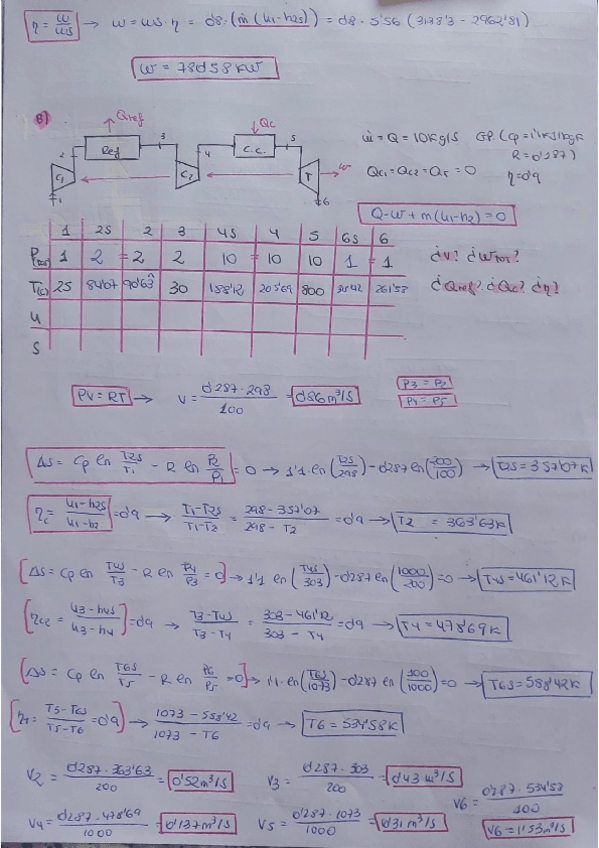 η = w/ws → w = ws · η = 0'8 · (ṁ (h1-h2s)) = 0'8 · 5'56 (3178'3 - 2962'81)
w = 78058kW
B)
Qref Qc
Ref C.C.
C1 C2 T w
1 2 3 4 5 6
ṁ = Q = 10kg/s GP (Cp = 1'1kJ/kgK
R = 0'287)
Qc1 = Qc2 = QT = 0 η = 0'9
Q-W + m(h1-h2) = 0
1 2s 2 3 4s 4 5 6s 6
P(bar) 1 2 = 2 2 10 = 10 10 1 = 1
T(C) 25 84'07 90'63 30 188'12 205'69 800 261'58
h
s
¿v? ¿wtot?
¿Qref? ¿Qc? ¿η?
PV = RT → v = 0'287 · 298 / 100 = 0'86 m³/s
P3 = P2
P4 = P5
Δs = Cp ln T2s/T1 - R ln P2/P1 = 0 → 1'1 ln (T2s/298) - 0'287 ln (200/100) → T2s = 357'07K
ηc = h1-h2s / h1-h2 = 0'9 → T1-T2s / T1-T2 = 298-357'07 / 298-T2 = 0'9 → T2 = 363'63K
Δs = Cp ln T4s/T3 - R ln P4/P3 = 0 → 1'1 ln (T4s/303) - 0'287 ln (1000/200) = 0 → T4s = 461'12K
ηc2 = h3-h4s / h3-h4 = 0'9 → T3-T4s / T3-T4 = 303-461'12 / 303-T4 = 0'9 → T4 = 478'69K
Δs = Cp ln T6s/T5 - R ln P6/P5 = 0 → 1'1 ln (T6s/1073) - 0'287 ln (100/1000) = 0 → T6s = 588'42K
ηT = T5-T6s / T5-T6 = 0'9 → 1073-588'42 / 1073-T6 = 0'9 → T6 = 534'58K
V2 = 0'287 · 363'63 / 200 = 0'52m³/s V3 = 0'287 · 303 / 200 = 0'43 m³/s V6 = 0'287 · 534'58 / 100
V4 = 0'287 · 478'69 / 1000 = 0'137m³/s V5 = 0'287 · 1073 / 1000 = 0'31 m³/s V6 = 1'53m³/s